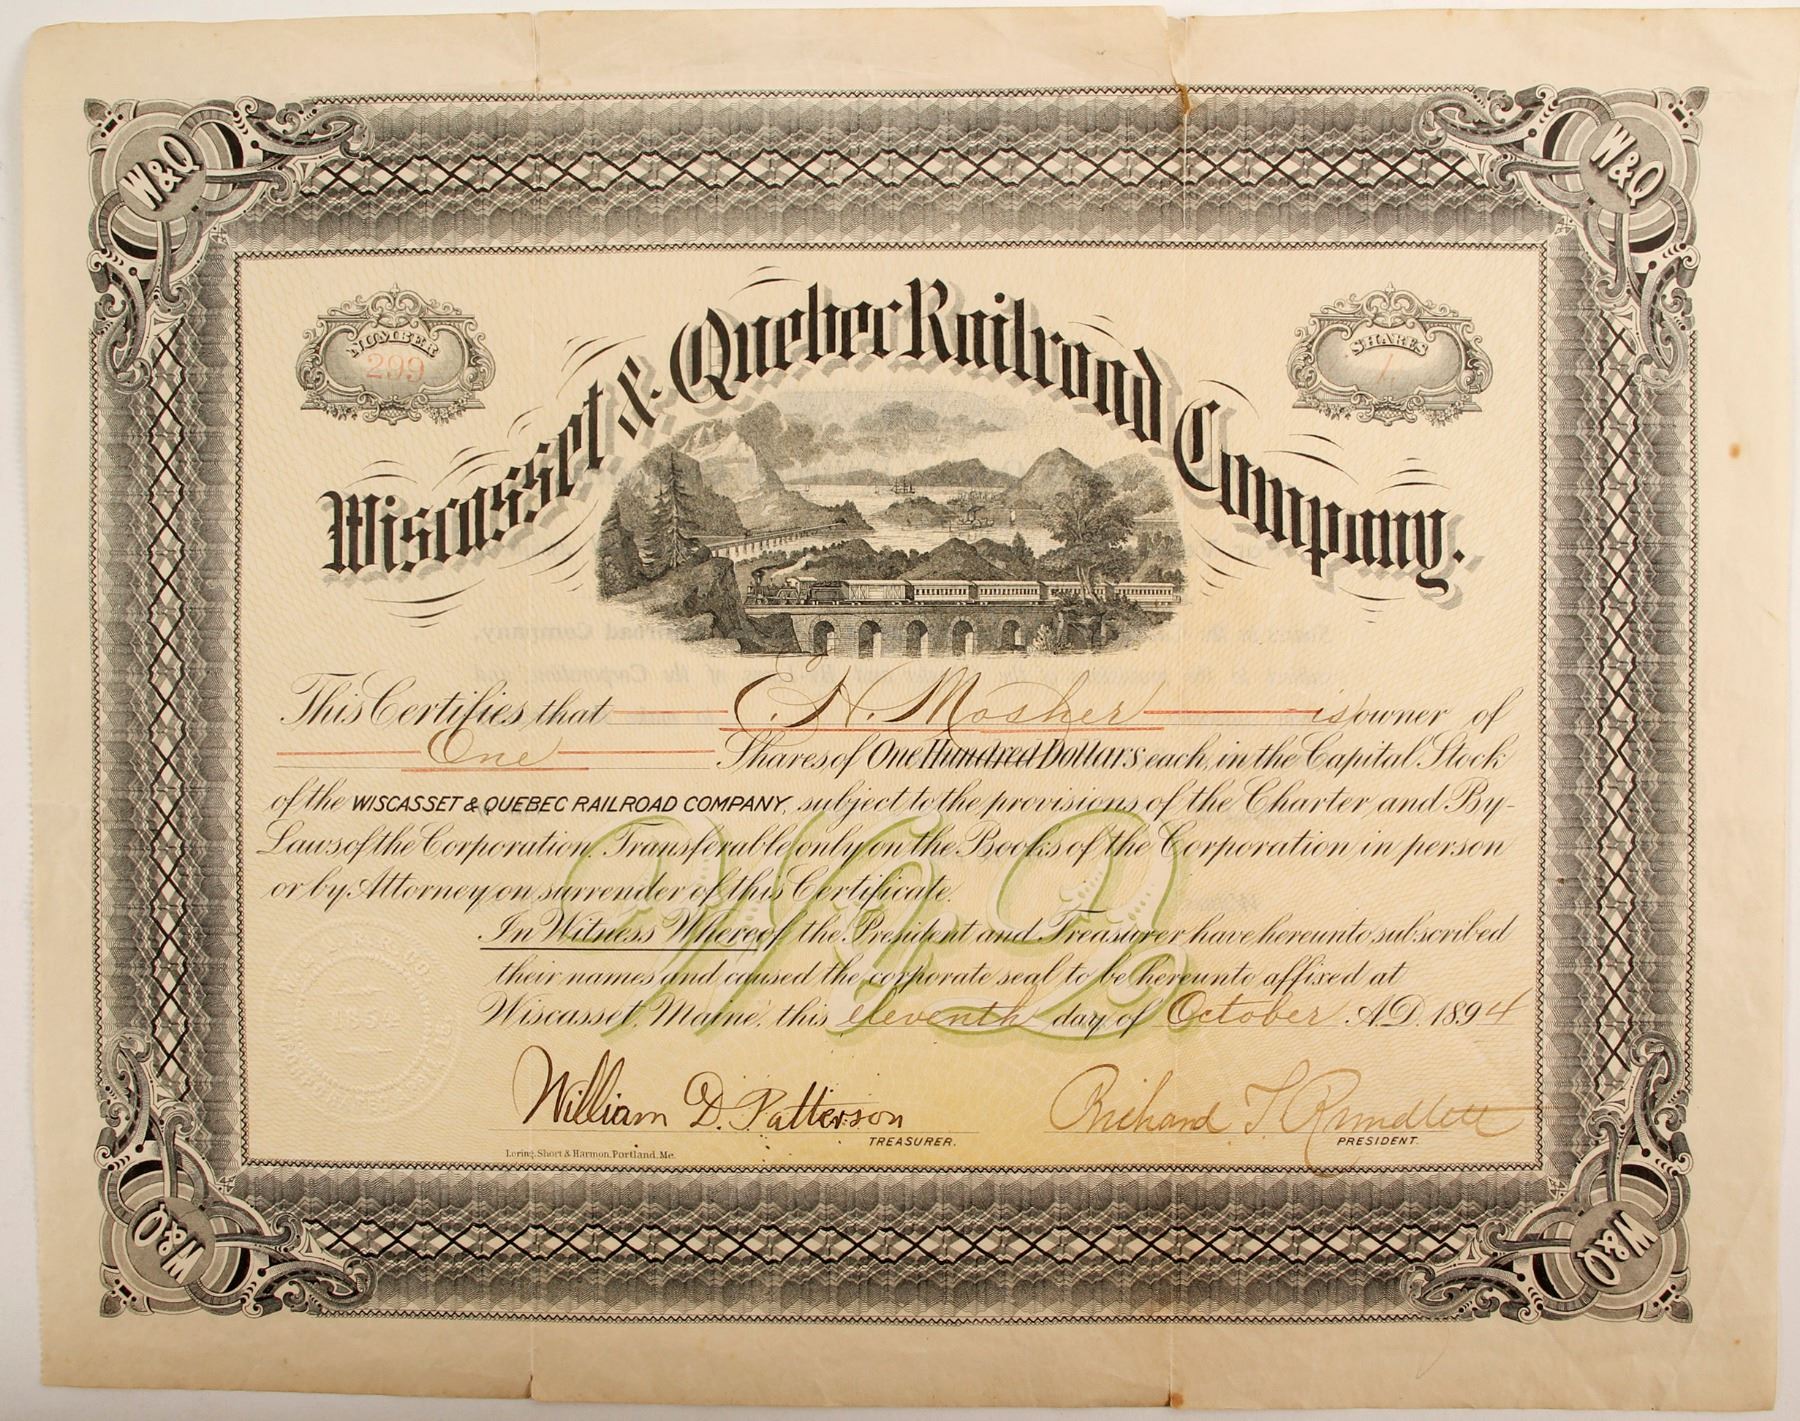 W&Q
W&Q
NUMBER
299
SHARES
1
Wiscasset & Quebec Railroad Company.
This Certifies that E. H. Mosher is owner of
One Shares of One Hundred Dollars each, in the Capital Stock
of the WISCASSET & QUEBEC RAILROAD COMPANY, subject to the provisions of the Charter and By-
Laws of the Corporation. Transferable only on the Books of the Corporation in person
or by Attorney on surrender of this Certificate.
In Witness Whereof, the President and Treasurer have hereunto subscribed
their names and caused the corporate seal to be hereunto affixed at
Wiscasset, Maine, this eleventh day of October A.D. 1894
W&Q
William D. Patterson
TREASURER.
Richard T. Rundlett
PRESIDENT.
Loring, Short & Harmon, Portland, Me.
W&Q
W&Q